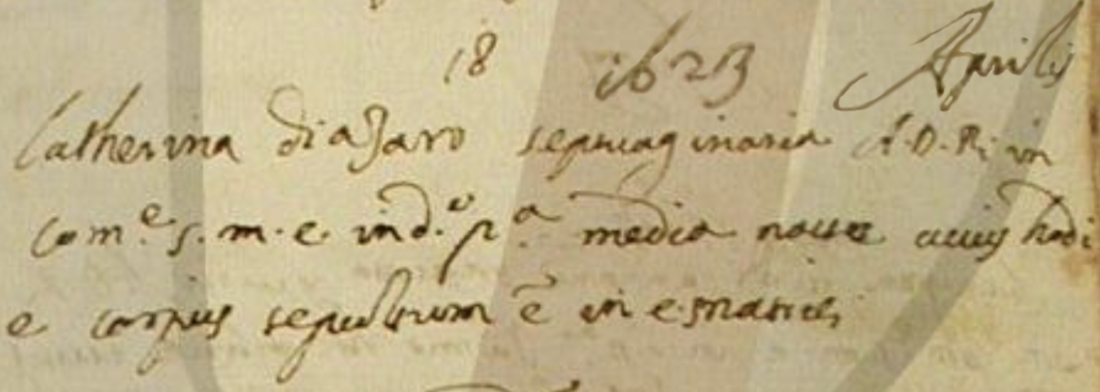 18 1623 Aprilis
Catherina diaJaro septuaginaria A.D.R. in
Com.e S.m.e. in d.o p.a media nocte cuius hodi
e corpus sepultum ē in e.